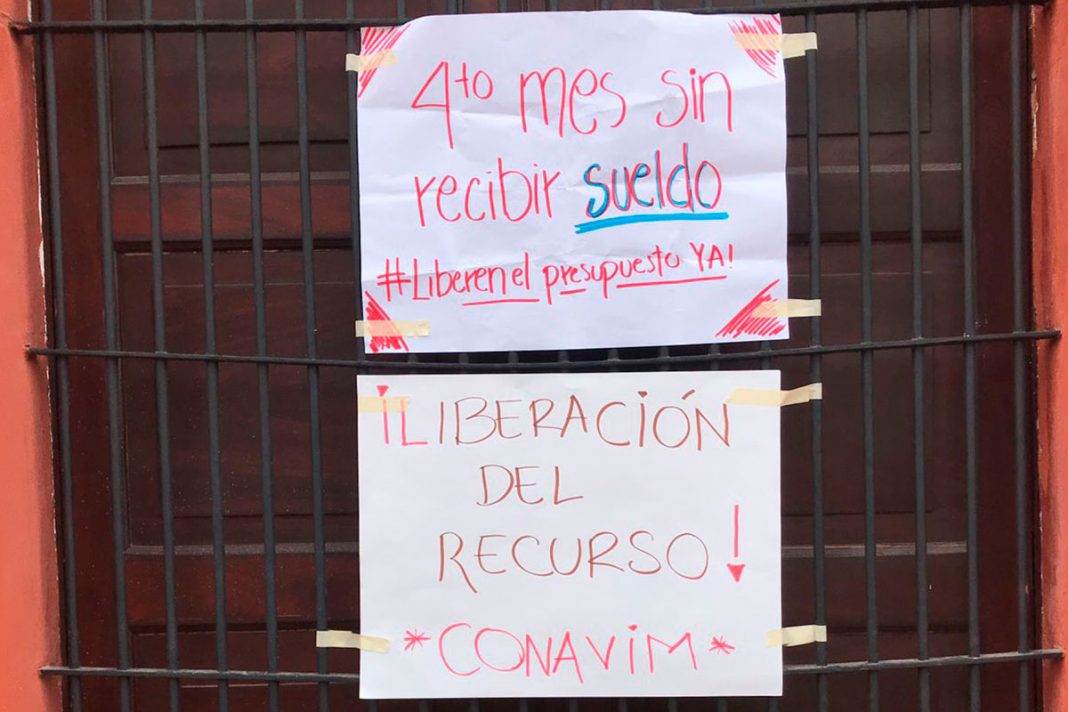 4to mes sin
recibir sueldo
#Liberen el presupuesto YA!
¡LIBERACIÓN
DEL
RECURSO!
*CONAViM*